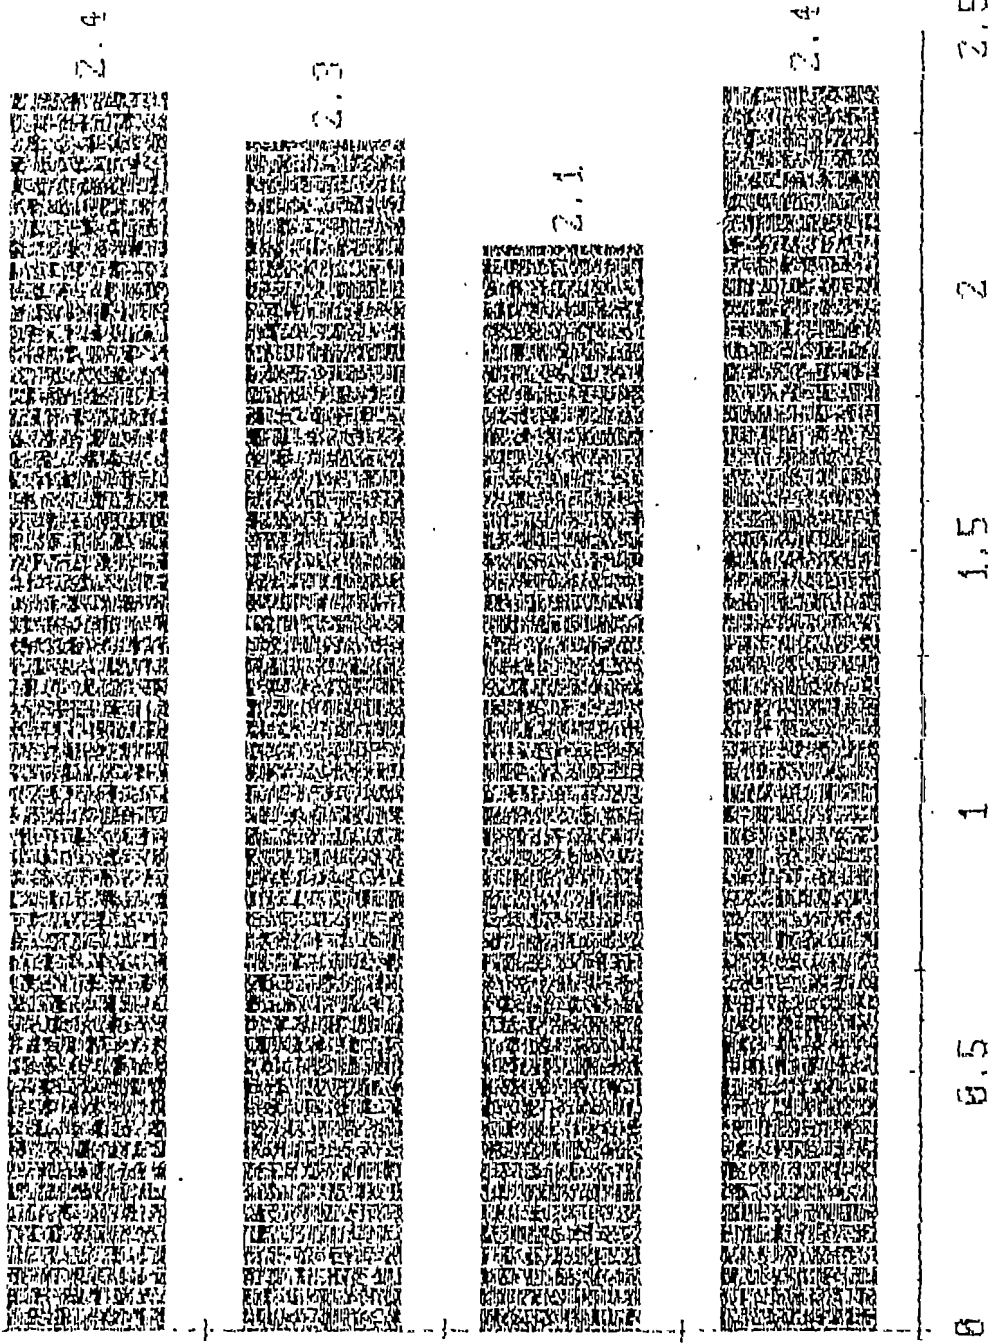 2.4
2.3
2.1
2.4
0
0.5
1
1.5
2
2.5